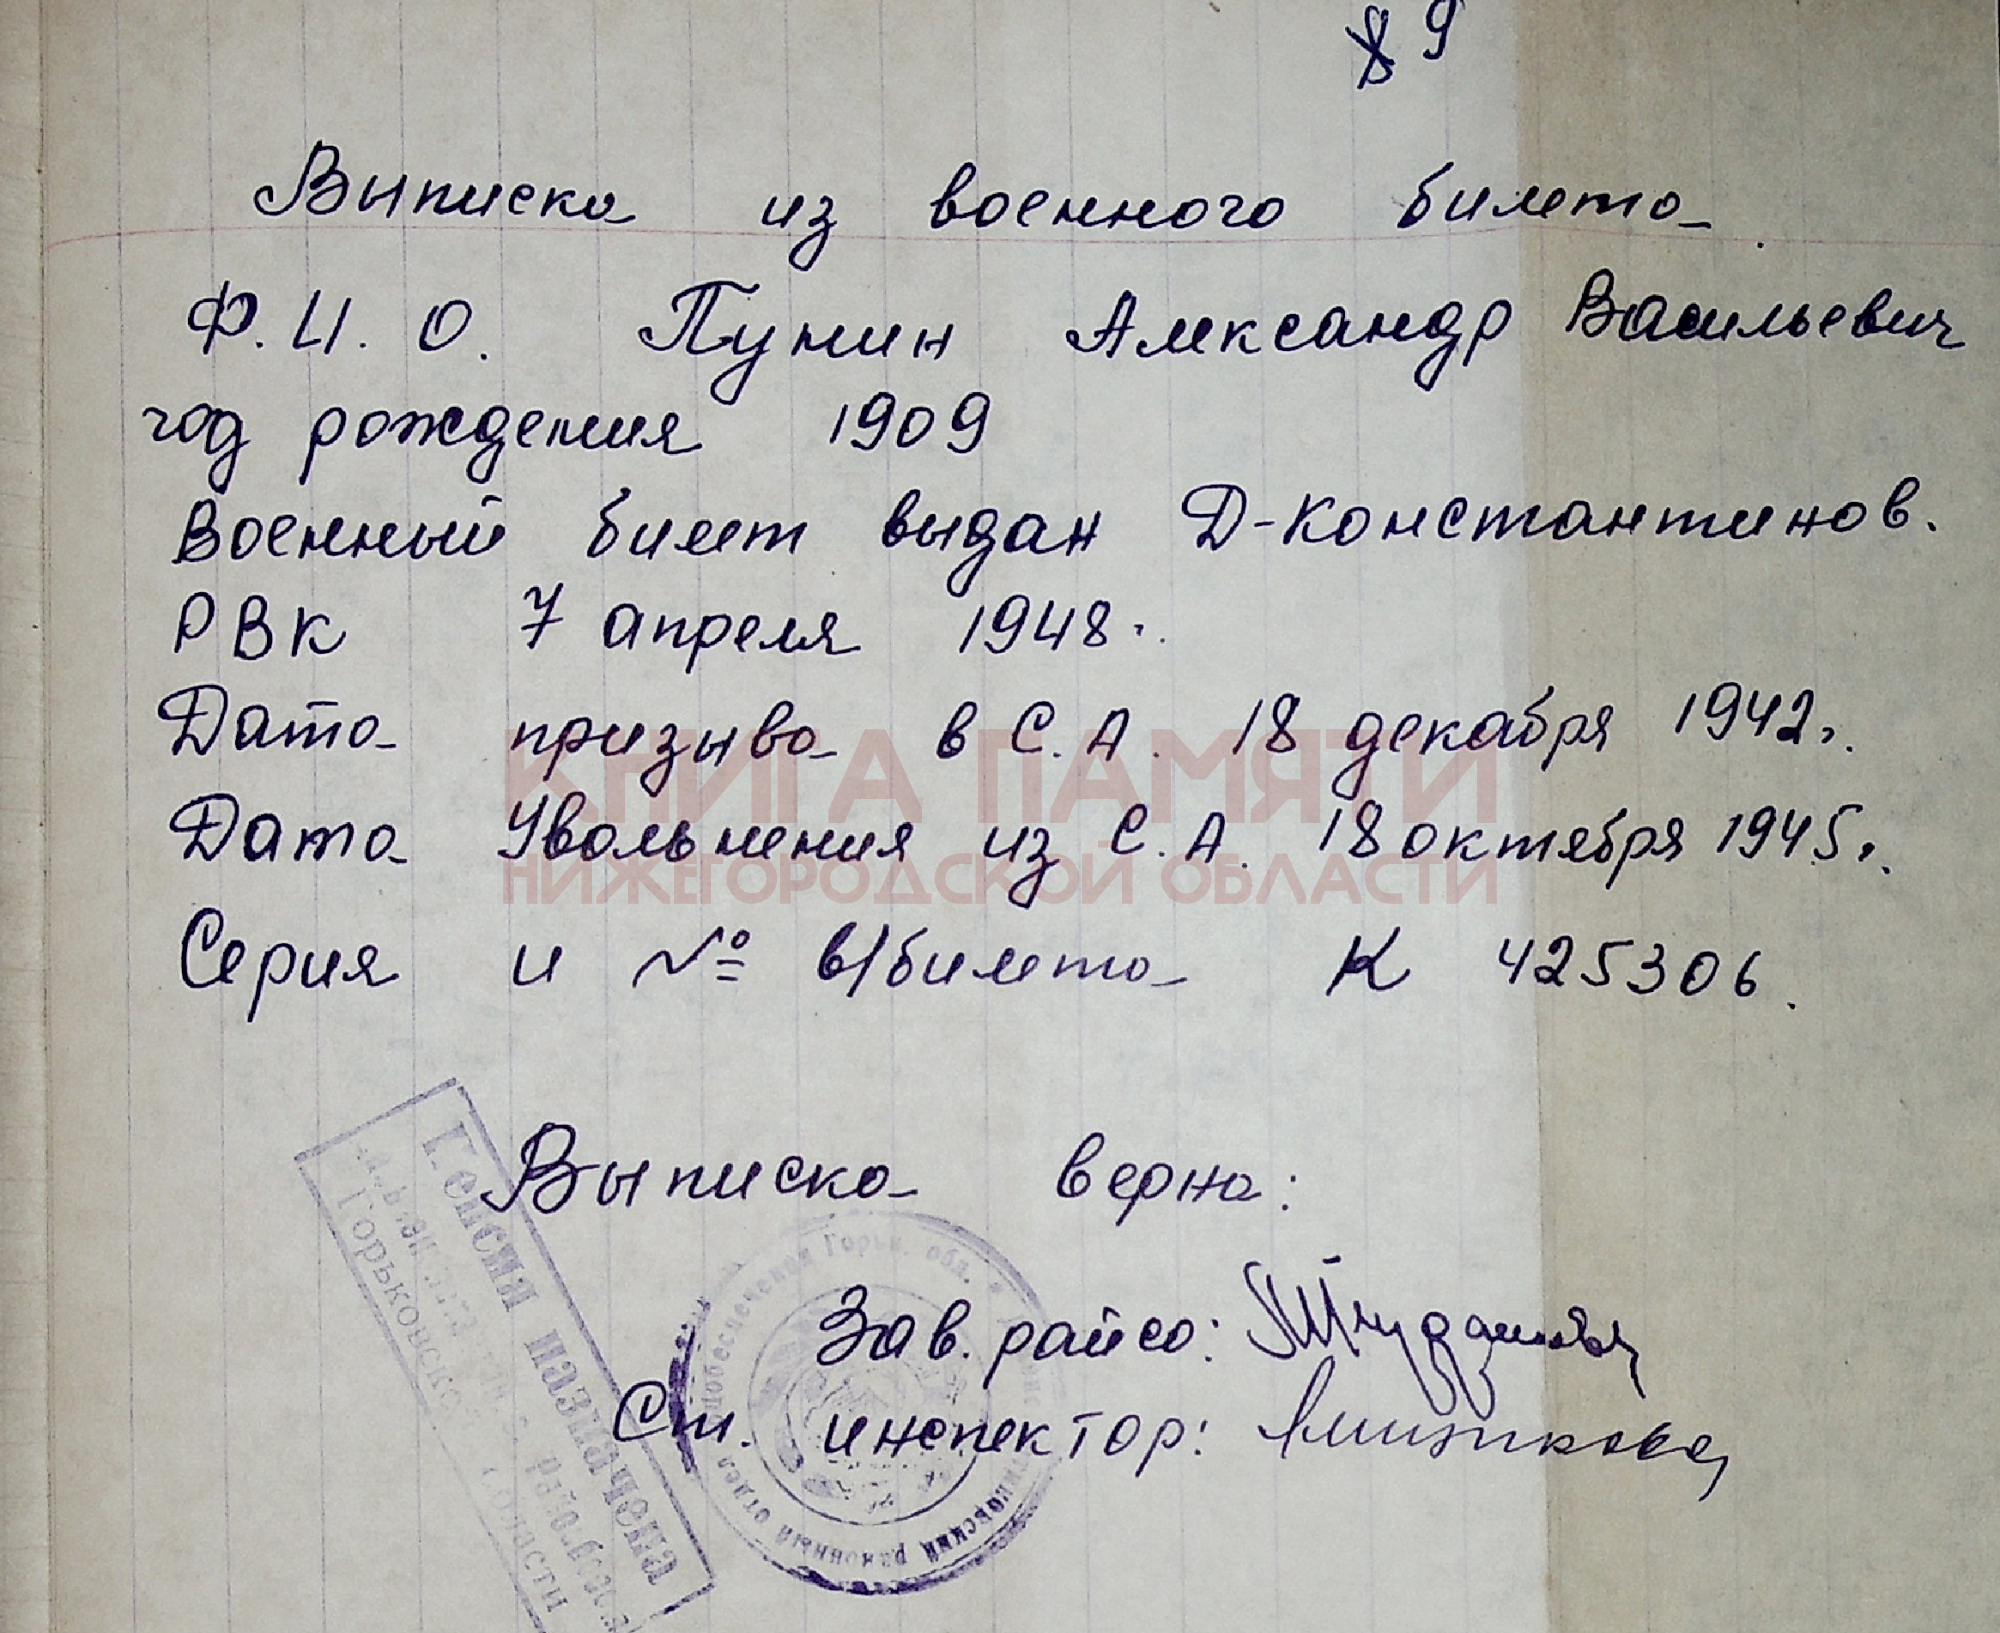 9
Выписка из военного билета
Ф.И.О. Пунин Александр Васильевич
год рождения 1909
Военный билет выдан Д-Константинов.
РВК 7 апреля 1948г.
Дата призыва в С.А. 18 декабря 1942г.
КНИГА ПАМЯТИ
Дата Увольнения из С.А. 18 октября 1945г.
НИЖЕГОРОДСКОЙ ОБЛАСТИ
Серия и № в/билета К 425306.
Выписка верна:
Зав. райсо:
Ст. инспектор:
Пенсия назначена
Горьковской области
районный отдел
Горьк. обл.